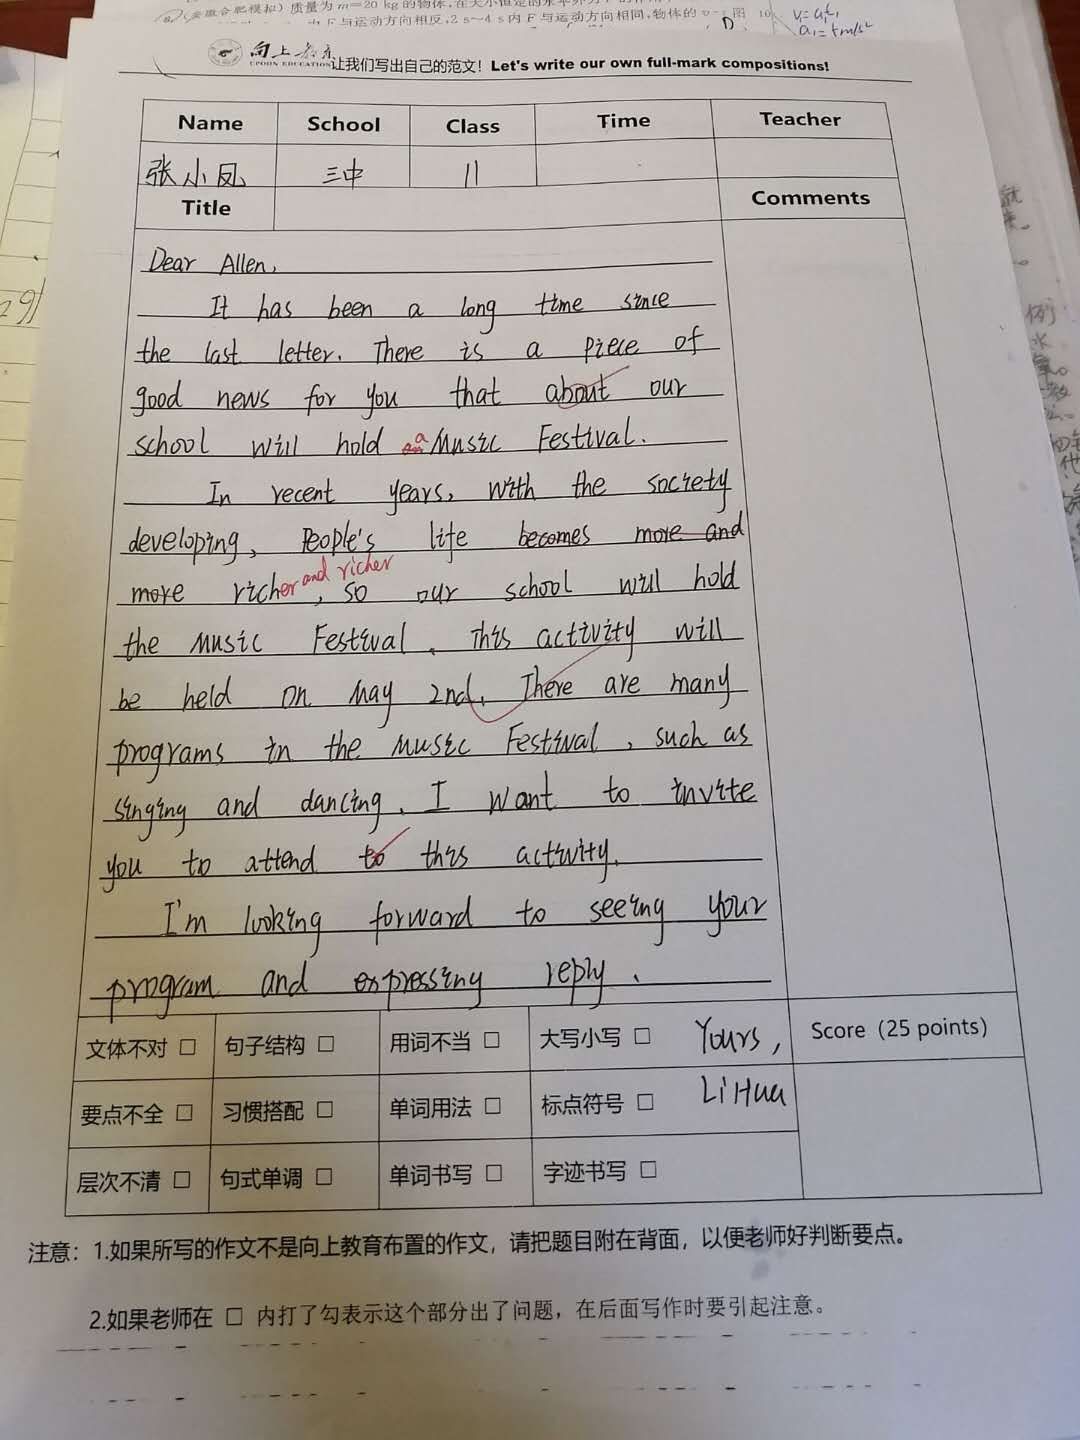 (安徽合肥模拟)质量为m=20 kg的物体,在大小恒定的水平外力
F与运动方向相反,2 s~4 s内F与运动方向相同,物体的v-t图
D
10
向上教育
UPOON EDUCATION
让我们写出自己的范文! Let's write our own full-mark compositions!
Name School Class Time Teacher
张小凤 三中 11
Title Comments
Dear Allen,
It has been a long time since
the last letter. There is a piece of
good news for you that about our
school will hold an a Music Festival.
In recent years, with the society
developing, People's life becomes more and
more richer and richer, so our school will hold
the Music Festival. This activity will
be held on May 2nd. There are many
programs in the Music Festival, such as
singing and dancing. I want to invite
you to attend to this activity.
I'm looking forward to seeing your
program and expressing reply.
Yours,
Li Hua
Score (25 points)
文体不对 □ 句子结构 □ 用词不当 □ 大写小写 □
要点不全 □ 习惯搭配 □ 单词用法 □ 标点符号 □
层次不清 □ 句式单调 □ 单词书写 □ 字迹书写 □
注意: 1.如果所写的作文不是向上教育布置的作文, 请把题目附在背面, 以便老师好判断要点。
2.如果老师在 □ 内打了勾表示这个部分出了问题, 在后面写作时要引起注意。